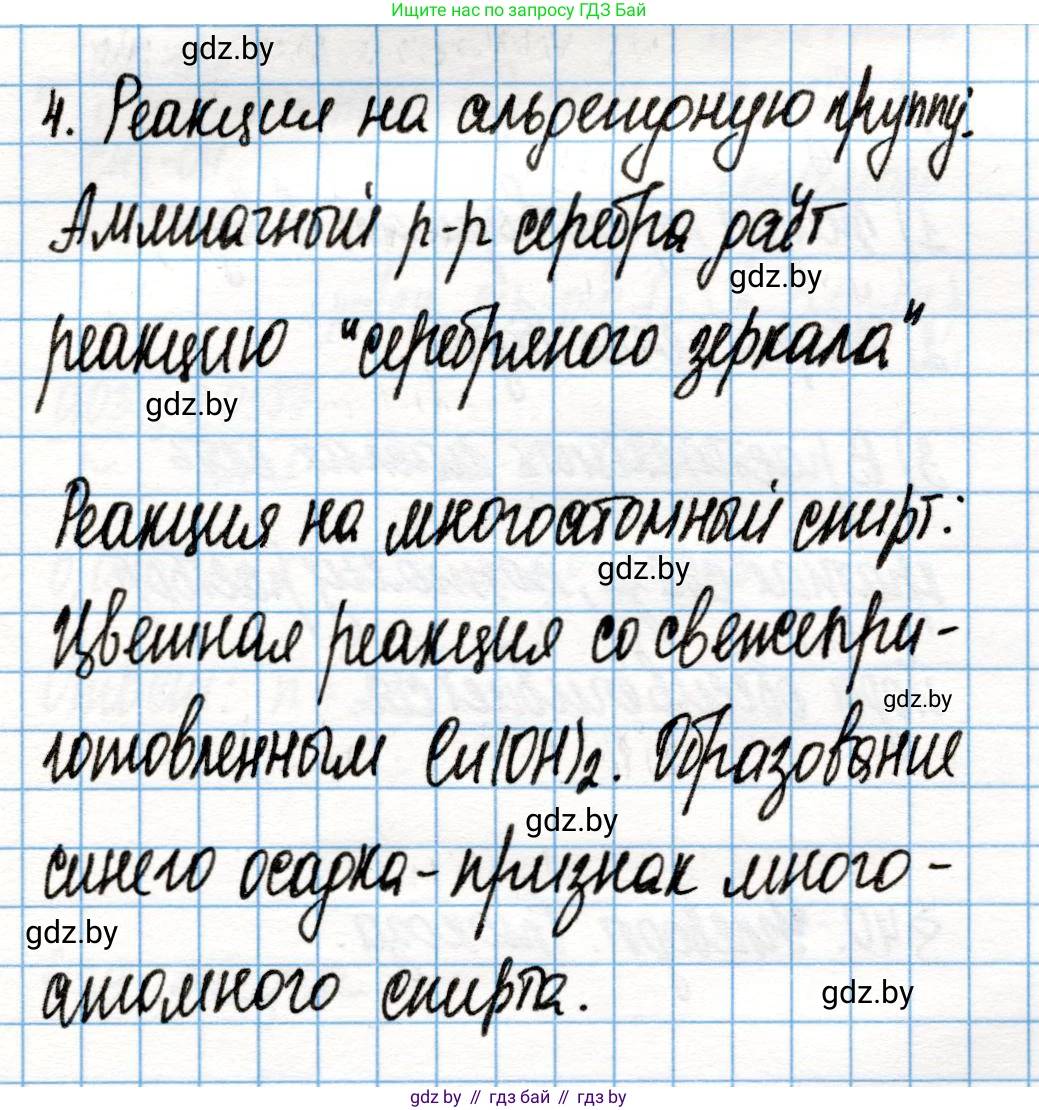 Ищите нас по запросу ГДЗ Бай
gdz.by
4. Реакция на альдегидную группу.
Аммиачный р-р серебра даёт
gdz.by
реакцию "серебряного зеркала"
gdz.by
Реакция на многоатомный спирт:
gdz.by
Цветная реакция со свежепри-
gdz.by
готовленным Cu(OH)2. Образование
gdz.by
синего осадка - признак много-
gdz.by
атомного спирта.
gdz.by
gdz by // гдз бай // gdz by